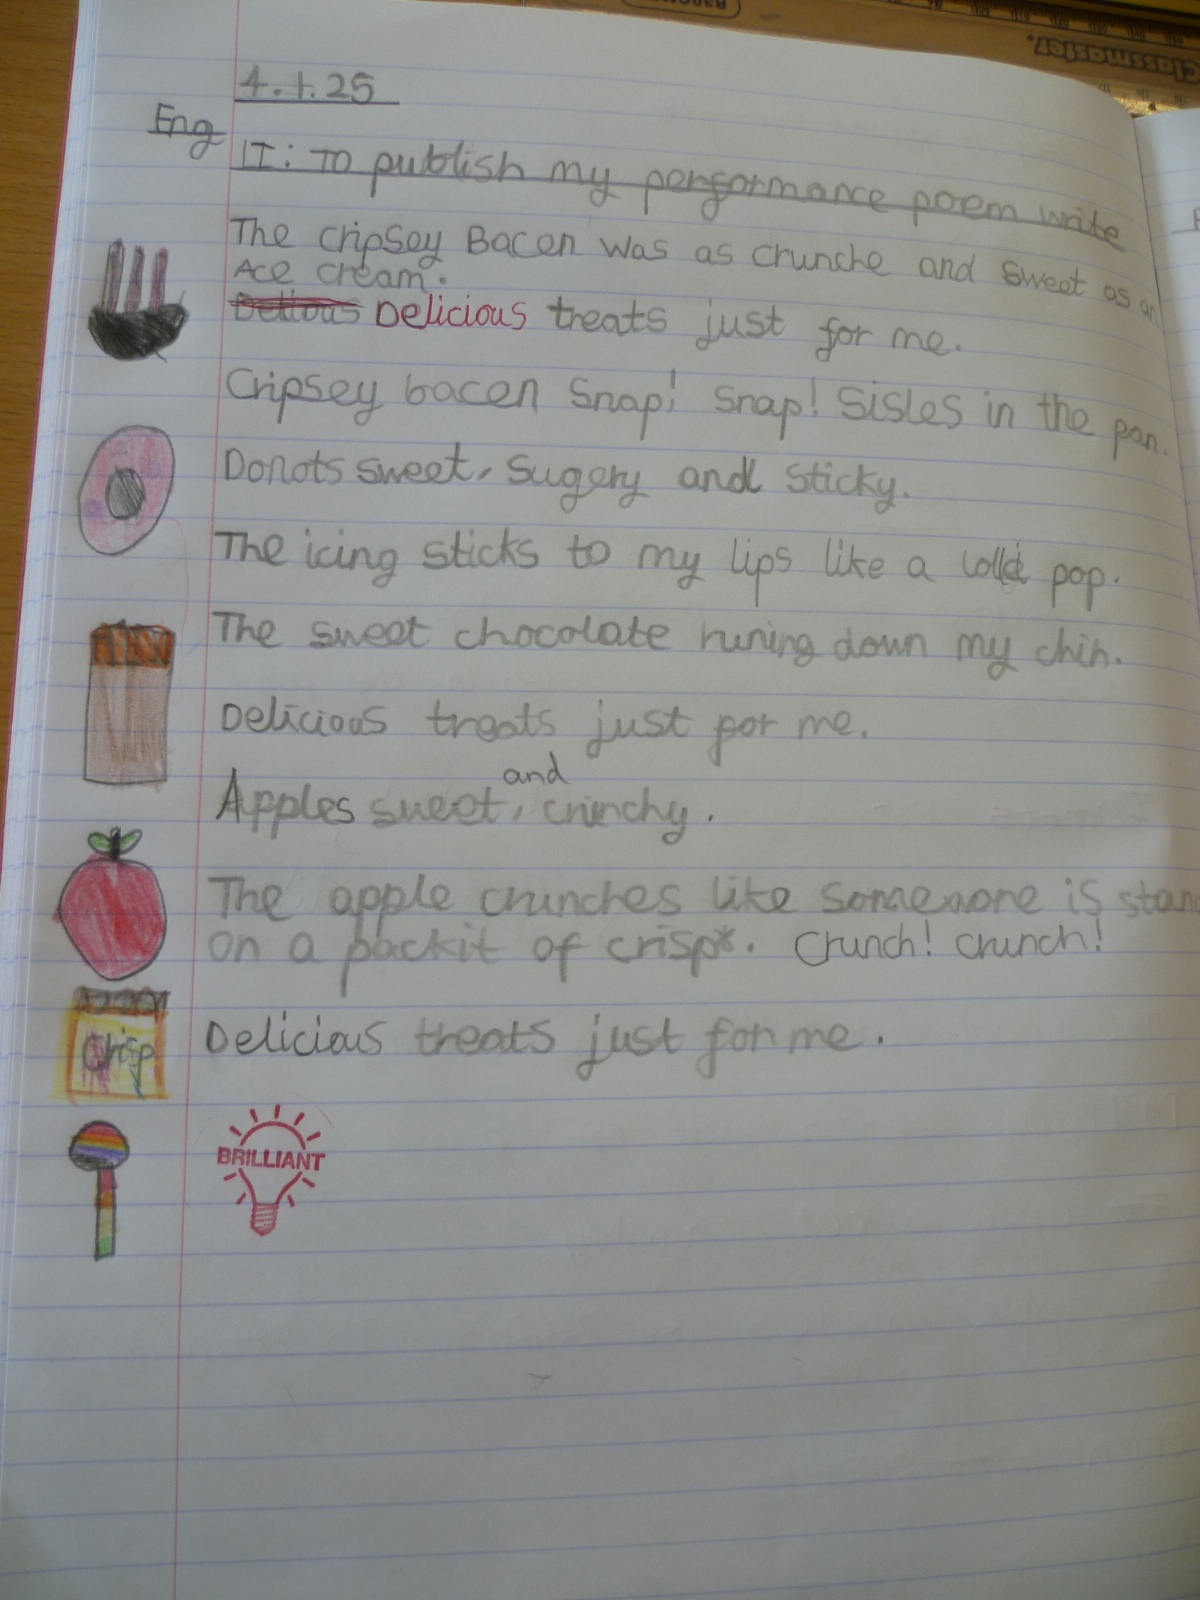 classmaster.
4.1.25
Eng
LI: To publish my performance poem write
The cripsey Bacen was as crunche and sweet as an
Ace cream.
Delious Delicious treats just for me.
Cripsey bacen Snap! Snap! Sisles in the pan.
Donots sweet, sugery and sticky.
The icing sticks to my lips like a lolli pop.
The sweet chocolate runing down my chin.
Delicious treats just for me.
and
Apples sweet, crunchy.
The apple crunches like Somenone is stand
on a packit of crisp. Crunch! crunch!
Crisp
Delicious treats just for me.
BRILLIANT